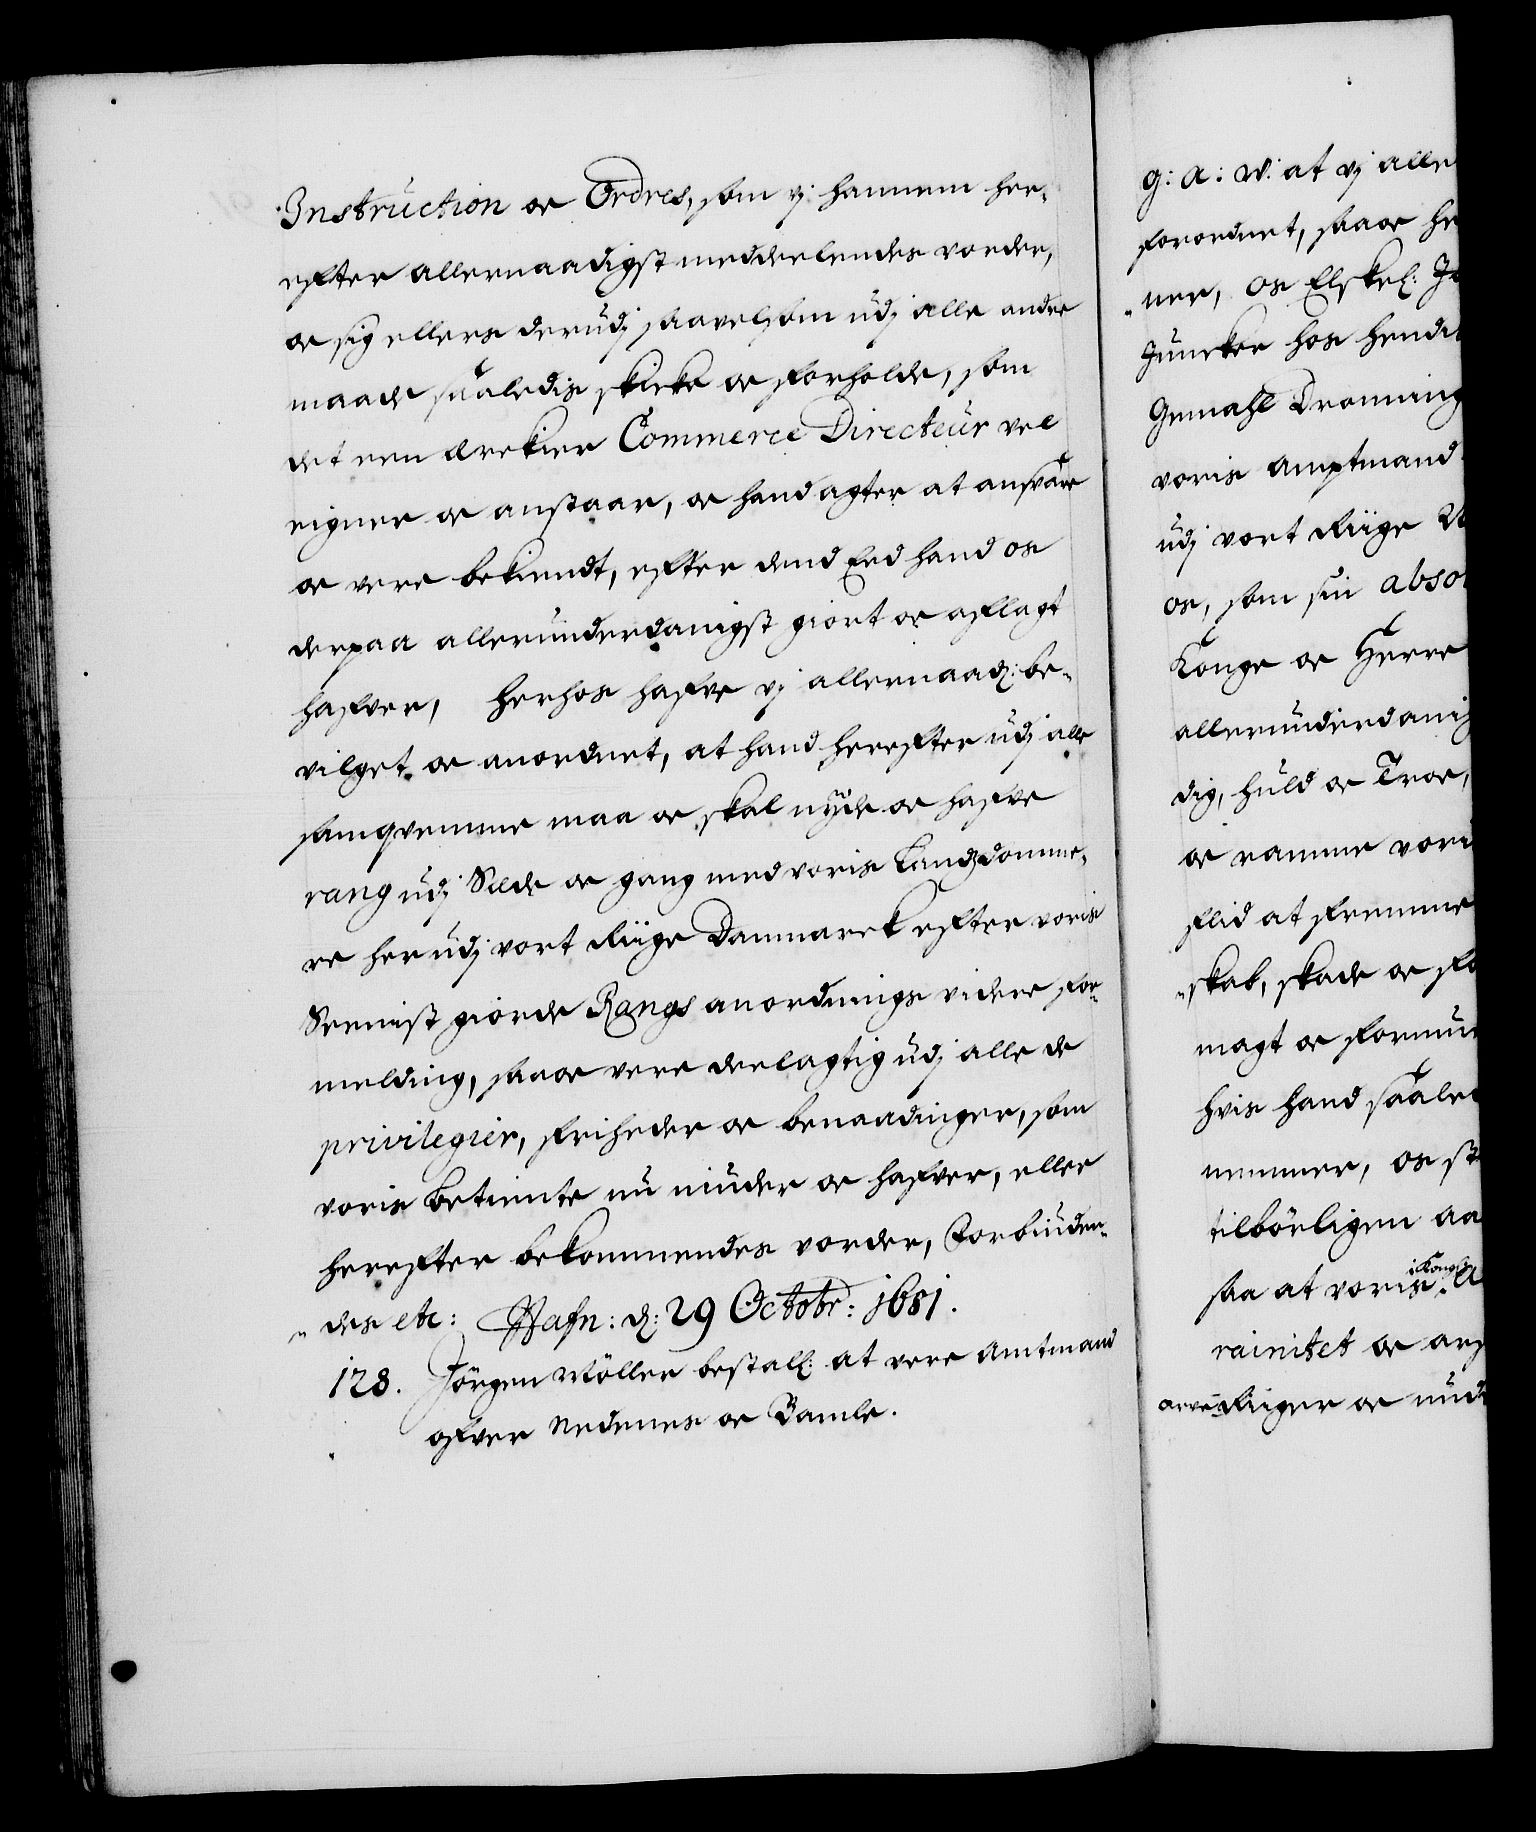 Instruction oc Ordres, som vj hannem her-
effter allernaadigst meddeelendes vorder,
oc sig ellers derudj saavelsom udj alle andre
maade saaledis skicke oc forholde, som
det een ærekier Commerce Directeur vel
eigner oc anstaar, oc hand agter at ansvare
oc vere bekiendt, effter dend Eed hand os
derpaa allerunderdanigst giort oc aflagt
hafver, Herhos hafve vj allernaad: be-
vilget oc anordnet, at hand hereffter udj alle
samqvemme maa oc skal nyde oc hafve
rang udj Sæde oc gang med voris Landzdomme-
re her udj vort Riige Danmarck effter voris
Seenist giorde Rangs anordnings videre for-
melding, saa oc vere deelagtig udj alle de
privilegier, friheder oc benaadinger, som
voris Betiente nu niuder oc hafver, eller
hereffter bekommendes vorder, Forbiuden-
des etc: Hafn: d: 29 Octobr: 1681.
128. Jörgen Möller bestall: at vere Amtmand
ofver Nedenes oc Bamle.
G: A: V: at vj alle
forordnet, saa oc he
ner, os Elskel: J
Juncker hos hendis
Gemahl Dronning
voris Amptmand
udj vort Riige
os, som sin abso
Konge oc Herre
allerunderdanig
dig, huld oc Troe,
oc ramme voris
flid at fremme
skab, skade oc fo
magt oc formue
hvis hand saale
nemmer, os st
tilbörligen aa
saa at voris Kongl:
rainitet oc arf
arve Riiger oc